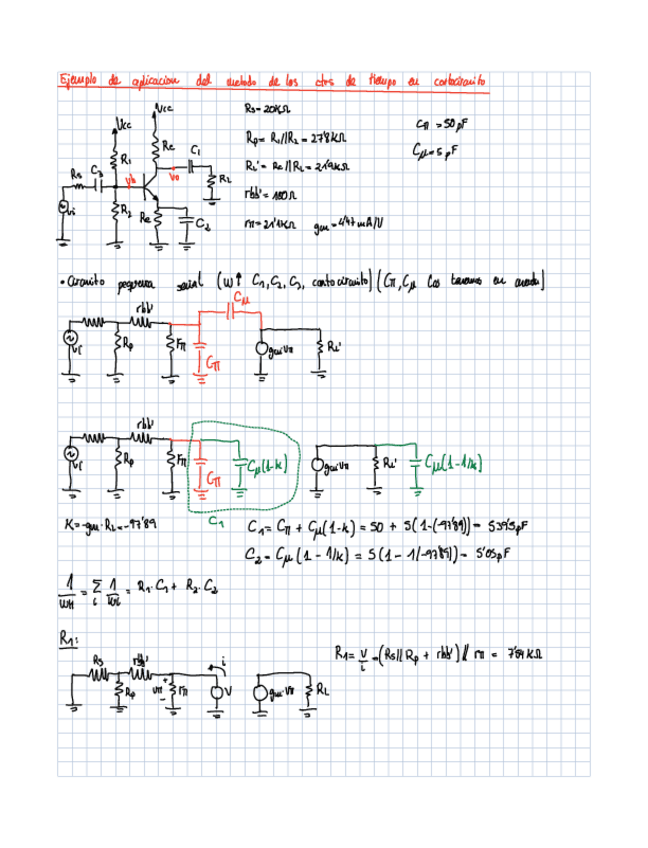 Ejemplo de aplicación del metodo de los ctes de tiempo en cortocircuito
Vcc
Vcc
Rc
C1
R1
Rs
C3
Vb
Vo
RL
Vi
R2
Re
C2
Rs=20KΩ
Rp= R1//R2 = 27'8KΩ
RL'= Rc//RL = 21'9KΩ
rbb'=
rπ= 21'1KΩ gm=4'47mA/V
Cπ=50pF
Cμ=5pF
• Circuito pequeña señal (w↑ C1, C2, C3, cortocircuito) (Cπ, Cμ los tenemos en cuenta)
rbb'
Cμ
Rp
rπ
Cπ
gm·Vπ
RL'
rbb'
Rp
rπ
Cπ
Cμ(1-k)
gm·Vπ
RL'
Cμ(1-1/k)
C1
K=-gm·RL=-97'89
C1= Cπ + Cμ(1-k) = 50 + 5(1-(-97'89)) =
C2= Cμ(1 - 1/k) = 5(1 - 1/-97'89)) = 5'05pF
1/WH = Σ i 1/Wi = R1·C1 + R2·C2
R1:
Rs
rbb'
Rp
Vπ
rπ
i
V
gm·Vπ
RL
R1= V/i = (Rs//Rp + rbb') // rπ = KΩ